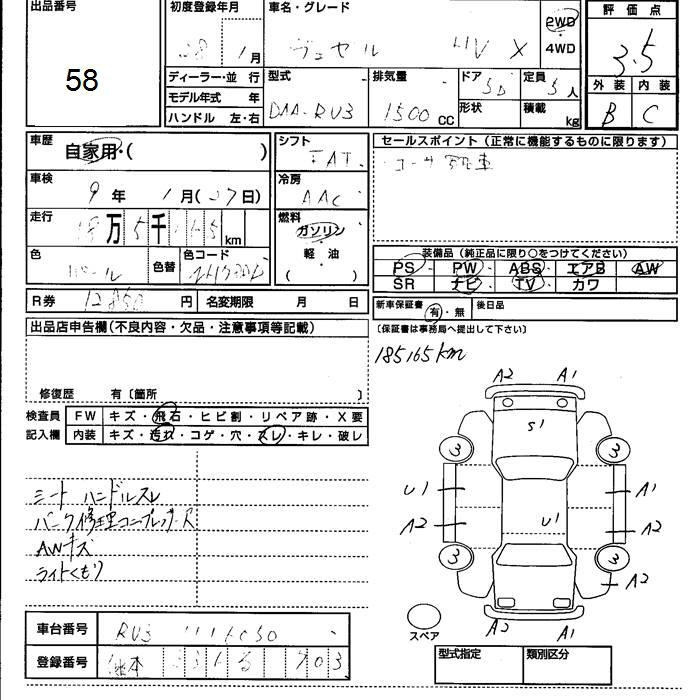 出品番号
58
初度登録年月
28 1月
車名・グレード
ヴェゼル HV X
2WD
4WD
評価点
3.5
外装 内装
B C
ディーラー・並行
モデル年式 年
ハンドル 左・右
型式
DAA-RU3
排気量
1500 CC
ドア
5D
定員
5人
形状
積載
kg
車歴
自家用・( )
シフト
FAT
セールスポイント(正常に機能するものに限ります)
車検
9年 1月(27日)
冷房
AAC
走行
18万5千165km
燃料
ガソリン
・
軽油
( )
色
パール
色替
色コード
R券
12850円
名変期限 月 日
装備品(純正品に限り○をつけてください)
PS PW ABS エアB AW
SR ナビ TV カワ
新車保証書
有・無
後日品
(保証書は事務局へ提出して下さい)
出品店申告欄(不良内容・欠品・注意事項等記載)
修復歴 有〔箇所 〕
185165km
検査員
記入欄
FW キズ・飛石・ヒビ割・リペア跡・X要
内装 キズ・汚れ・コゲ・穴・スレ・キレ・破レ
シートハンドルスレ
パンク修理コンプレッサーヌ
AWキズ
ライトくもり
A2 A1
S1
3 3
U1 A1
A2 U1 A2
3 3
A2
A2 A1
スペア
車台番号
RU3
登録番号
熊本
型式指定 類別区分